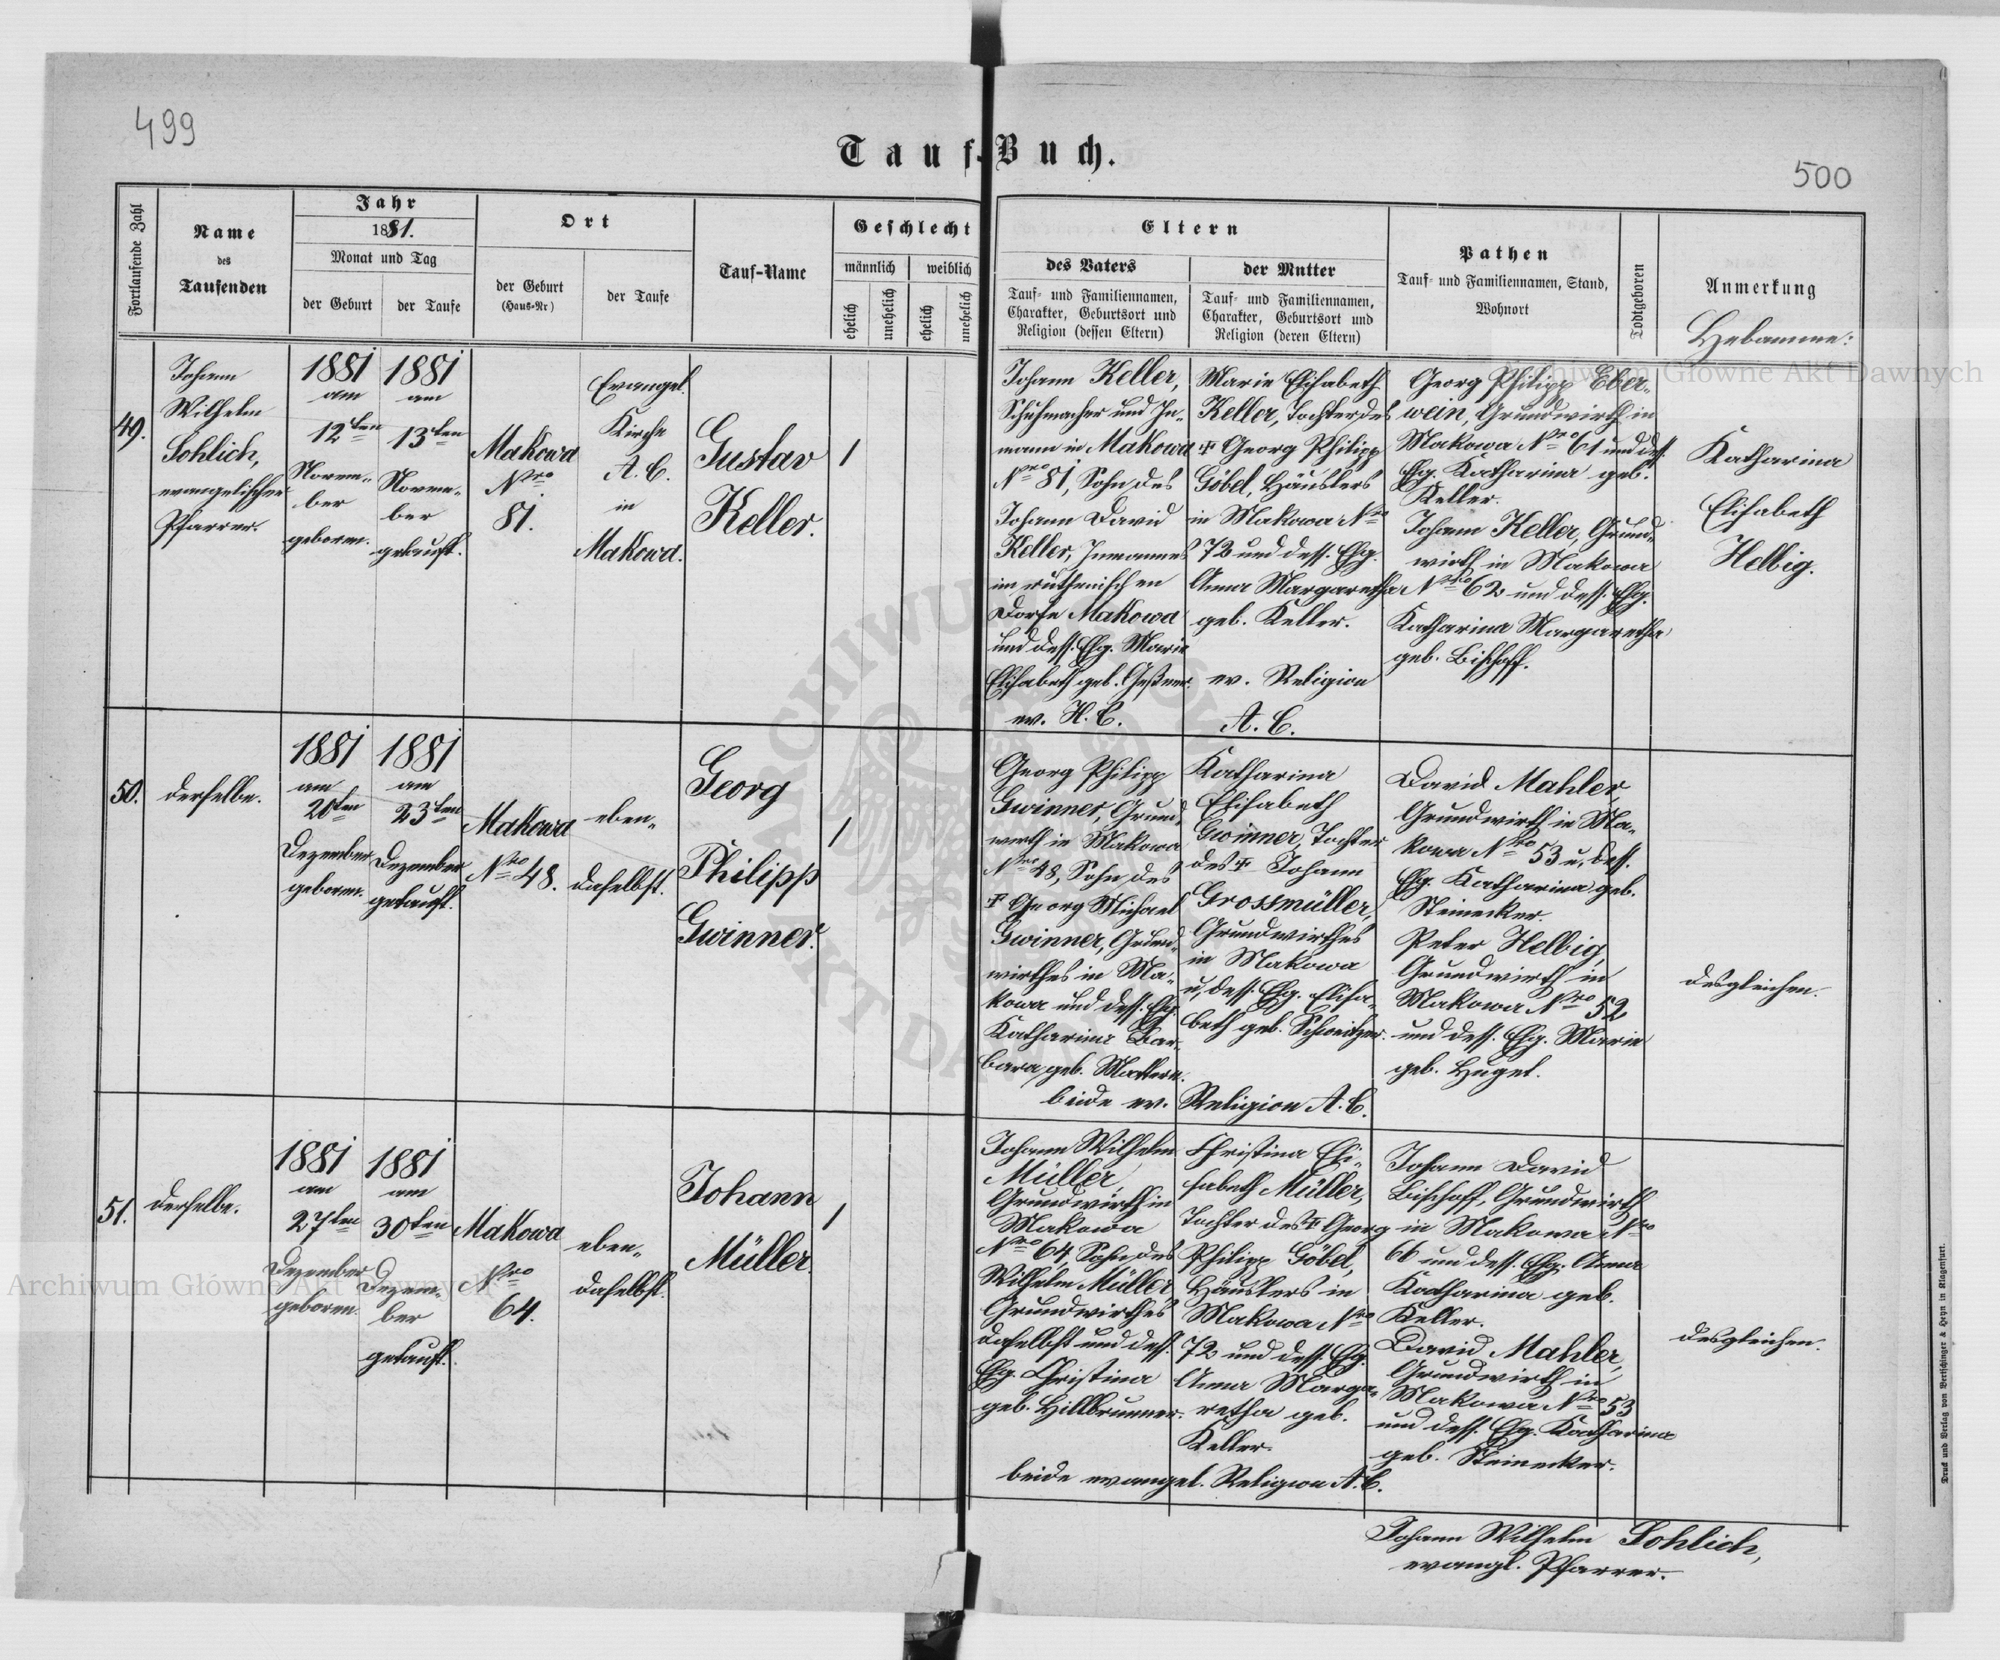 499
500
Tauf-Buch.
Fortlaufende Zahl
Name
des
Taufenden
Jahr
1881.
Monat und Tag
der Geburt
der Taufe
Ort
der Geburt
(Haus-Nr)
der Taufe
Tauf-Name
Geschlecht
männlich
weiblich
ehelich
unehelich
ehelich
unehelich
Eltern
des Vaters
Tauf- und Familiennamen,
Charakter, Geburtsort und
Religion (dessen Eltern)
der Mutter
Tauf- und Familiennamen,
Charakter, Geburtsort und
Religion (deren Eltern)
Pathen
Tauf- und Familiennamen, Stand,
Wohnort
Todtgeboren
Anmerkung
Hebamme:
49.
Johann
Wilhelm
Sohlich,
evangelischer
Pfarrer.
1881
am
12ten
Novem-
ber
geboren.
1881
am
13ten
Novem-
ber
getauft.
Makowa
Nro
81.
Evangel.
Kirche
A. C.
in
Makowa.
Gustav
Keller.
1
Johann Keller,
Schuhmacher und In-
mann in Makowa
Nro 81, Sohn des
Johann David
Keller, Inmannes
im ruthenischen
Dorfe Makowa
und dess. Ehg. Marie
Elisabeth geb. Geßner.
ev. H. C.
Marie Elisabeth
Keller, Tochter des
† Georg Philipp
Göbel, Häuslers
in Makowa Nro
72 und dess. Ehg.
Anna Margaretha
geb. Keller.
ev. Religion
A. C.
Georg Philipp Eber-
wein, Grundwirth in
Makowa Nro 61 und dess.
Ehg. Katharina geb.
Keller.
Johann Keller, Grund-
wirth in Makowa
Nro 62 und dess. Ehg.
Katharina Margaretha
geb. Bischoff.
Katharina
Elisabeth
Helbig.
50.
derselbe.
1881
am
20ten
Dezember
geboren.
1881
am
23ten
Dezember
getauft.
Makowa
Nro 48.
eben-
daselbst.
Georg
Philipp
Gwinner.
1
Georg Philipp
Gwinner, Grund-
wirth in Makowa
Nro 48, Sohn des
† Georg Michael
Gwinner, Grund-
wirthes in Ma-
kowa und dess. Ehg.
Katharina Bar-
bara geb. Mattern.
Katharina
Elisabeth
Gwinner, Tochter
des † Johann
Grossmüller,
Grundwirthes
in Makowa
u. dess. Ehg. Elisa-
beth geb. Schweitzer.
beide ev. Religion A. C.
David Mahler,
Grundwirth in Ma-
kowa Nro 53 u. dess.
Ehg. Katharina geb.
Steinecker.
Peter Helbig,
Grundwirth in
Makowa Nro 52
und dess. Ehg. Marie
geb. Hugel.
desgleichen.
51.
derselbe.
1881
am
27ten
Dezember
geboren.
1881
am
30ten
Dezem-
ber
getauft.
Makowa
Nro
64.
eben-
daselbst.
Johann
Müller.
1
Johann Wilhelm
Müller,
Grundwirth in
Makowa
Nro 64, Sohn des
Wilhelm Müller
Grundwirthes
daselbst und dess.
Ehg. Christina
geb. Hillbrunner.
Christina Eli-
sabeth Müller,
Tochter des † Georg
Philipp Göbel,
Häuslers in
Makowa Nro
72 und dess. Ehg.
Anna Marga-
retha geb.
Keller.
beide evangel. Religion A. C.
Johann David
Bischoff, Grundwirth
in Makowa Nro
66 und dess. Ehg. Anna
Katharina geb.
Keller.
David Mahler,
Grundwirth in
Makowa Nro 53
und dess. Ehg. Katharina
geb. Steinecker.
desgleichen.
Johann Wilhelm Sohlich,
evangl. Pfarrer.
Druck und Verlag von Bertschinger & Heyn in Klagenfurt.
Archiwum Główne Akt Dawnych
Archiwum Główne Akt Dawnych